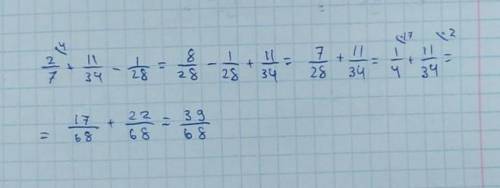 2/7 ⁴ + 11/34 - 1/28 = 8/28 - 1/28 + 11/34 = 7/28 + 11/34 = 1/4 ¹⁷ + 11/34 ² =
= 17/68 + 22/68 = 39/68